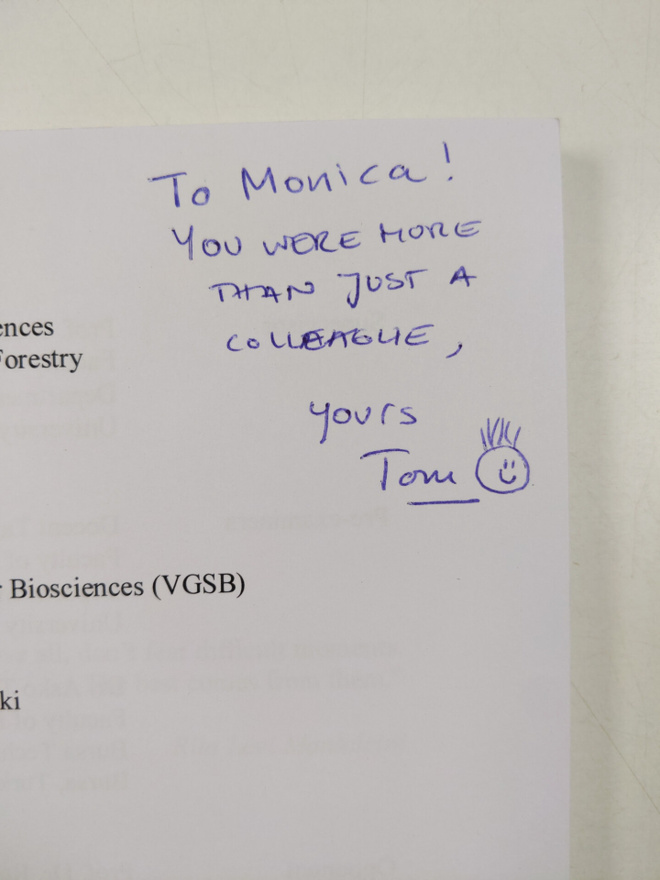 To Monica!
YOU WERE MORE
THAN JUST A
COLLEAGUE,
yours
Tom
ences
Forestry
Biosciences (VGSB)
ki